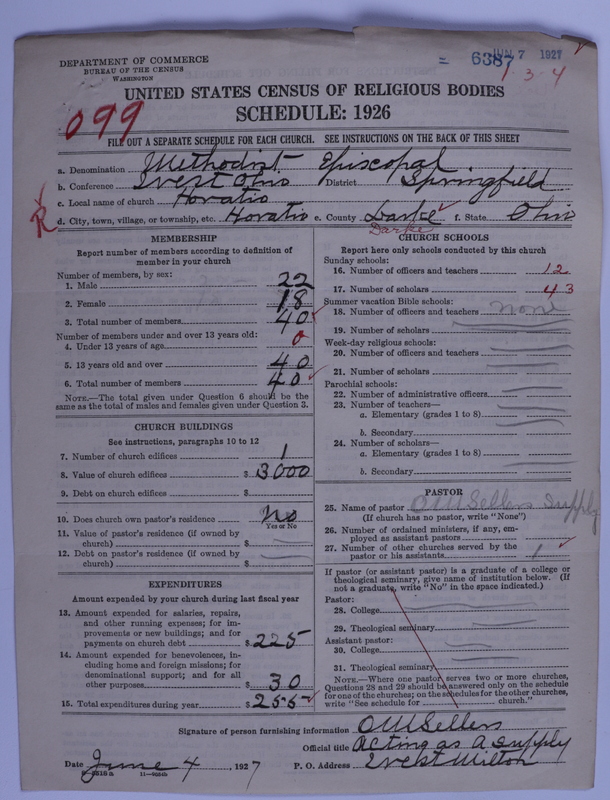 DEPARTMENT OF COMMERCE
BUREAU OF THE CENSUS
WASHINGTON
= 6387 JUN 7 1927
1 3 4
UNITED STATES CENSUS OF RELIGIOUS BODIES
SCHEDULE: 1926
099
FILL OUT A SEPARATE SCHEDULE FOR EACH CHURCH. SEE INSTRUCTIONS ON THE BACK OF THIS SHEET
a. Denomination Methodist Episcopal
b. Conference West Ohio District Springfield
c. Local name of church Horatio
R d. City, town, village, or township, etc. Horatio e. County Darke f. State Ohio
Darke
MEMBERSHIP
Report number of members according to definition of
member in your church
Number of members, by sex:
1. Male 22
2. Female 18
3. Total number of members 40
Number of members under and over 13 years old:
4. Under 13 years of age 0
5. 13 years old and over 40
6. Total number of members 40
NOTE.—The total given under Question 6 should be the
same as the total of males and females given under Question 3.
CHURCH BUILDINGS
See instructions, paragraphs 10 to 12
7. Number of church edifices 1
8. Value of church edifices $ 3000
9. Debt on church edifices $
10. Does church own pastor's residence No
Yes or No
11. Value of pastor's residence (if owned by
church) $
12. Debt on pastor's residence (if owned by
church) $
EXPENDITURES
Amount expended by your church during last fiscal year
13. Amount expended for salaries, repairs,
and other running expenses; for im-
provements or new buildings; and for
payments on church debt $ 225
14. Amount expended for benevolences, in-
cluding home and foreign missions; for
denominational support; and for all
other purposes $ 30
15. Total expenditures during year $ 255
CHURCH SCHOOLS
Report here only schools conducted by this church
Sunday schools:
16. Number of officers and teachers 12
17. Number of scholars 43
Summer vacation Bible schools:
18. Number of officers and teachers none
19. Number of scholars
Week-day religious schools:
20. Number of officers and teachers
21. Number of scholars
Parochial schools:
22. Number of administrative officers
23. Number of teachers—
a. Elementary (grades 1 to 8)
b. Secondary
24. Number of scholars—
a. Elementary (grades 1 to 8)
b. Secondary
PASTOR
25. Name of pastor O M Sellers Supply
(If church has no pastor, write "None")
26. Number of ordained ministers, if any, em-
ployed as assistant pastors
27. Number of other churches served by the
pastor or his assistants 1
If pastor (or assistant pastor) is a graduate of a college or
theological seminary, give name of institution below. (If
not a graduate, write "No" in the space indicated.)
Pastor:
28. College
29. Theological seminary
Assistant pastor:
30. College
31. Theological seminary
NOTE.—Where one pastor serves two or more churches,
Questions 28 and 29 should be answered only on the schedule
for one of the churches; on the schedules for the other churches,
write "See schedule for church."
Signature of person furnishing information O M Sellers
Official title Acting as a supply
Date June 4, 1927 P. O. Address West Milton